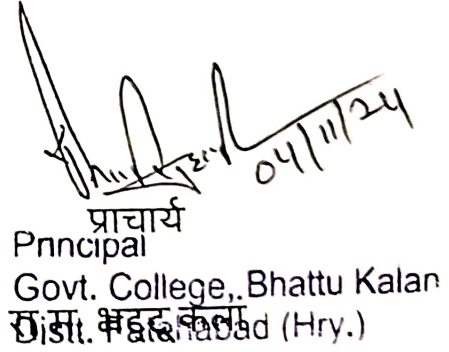 04/11/24
प्राचार्य
Principal
Govt. College, Bhattu Kalan
रा. म. भट्टू कलां
Distt. Fatehabad (Hry.)